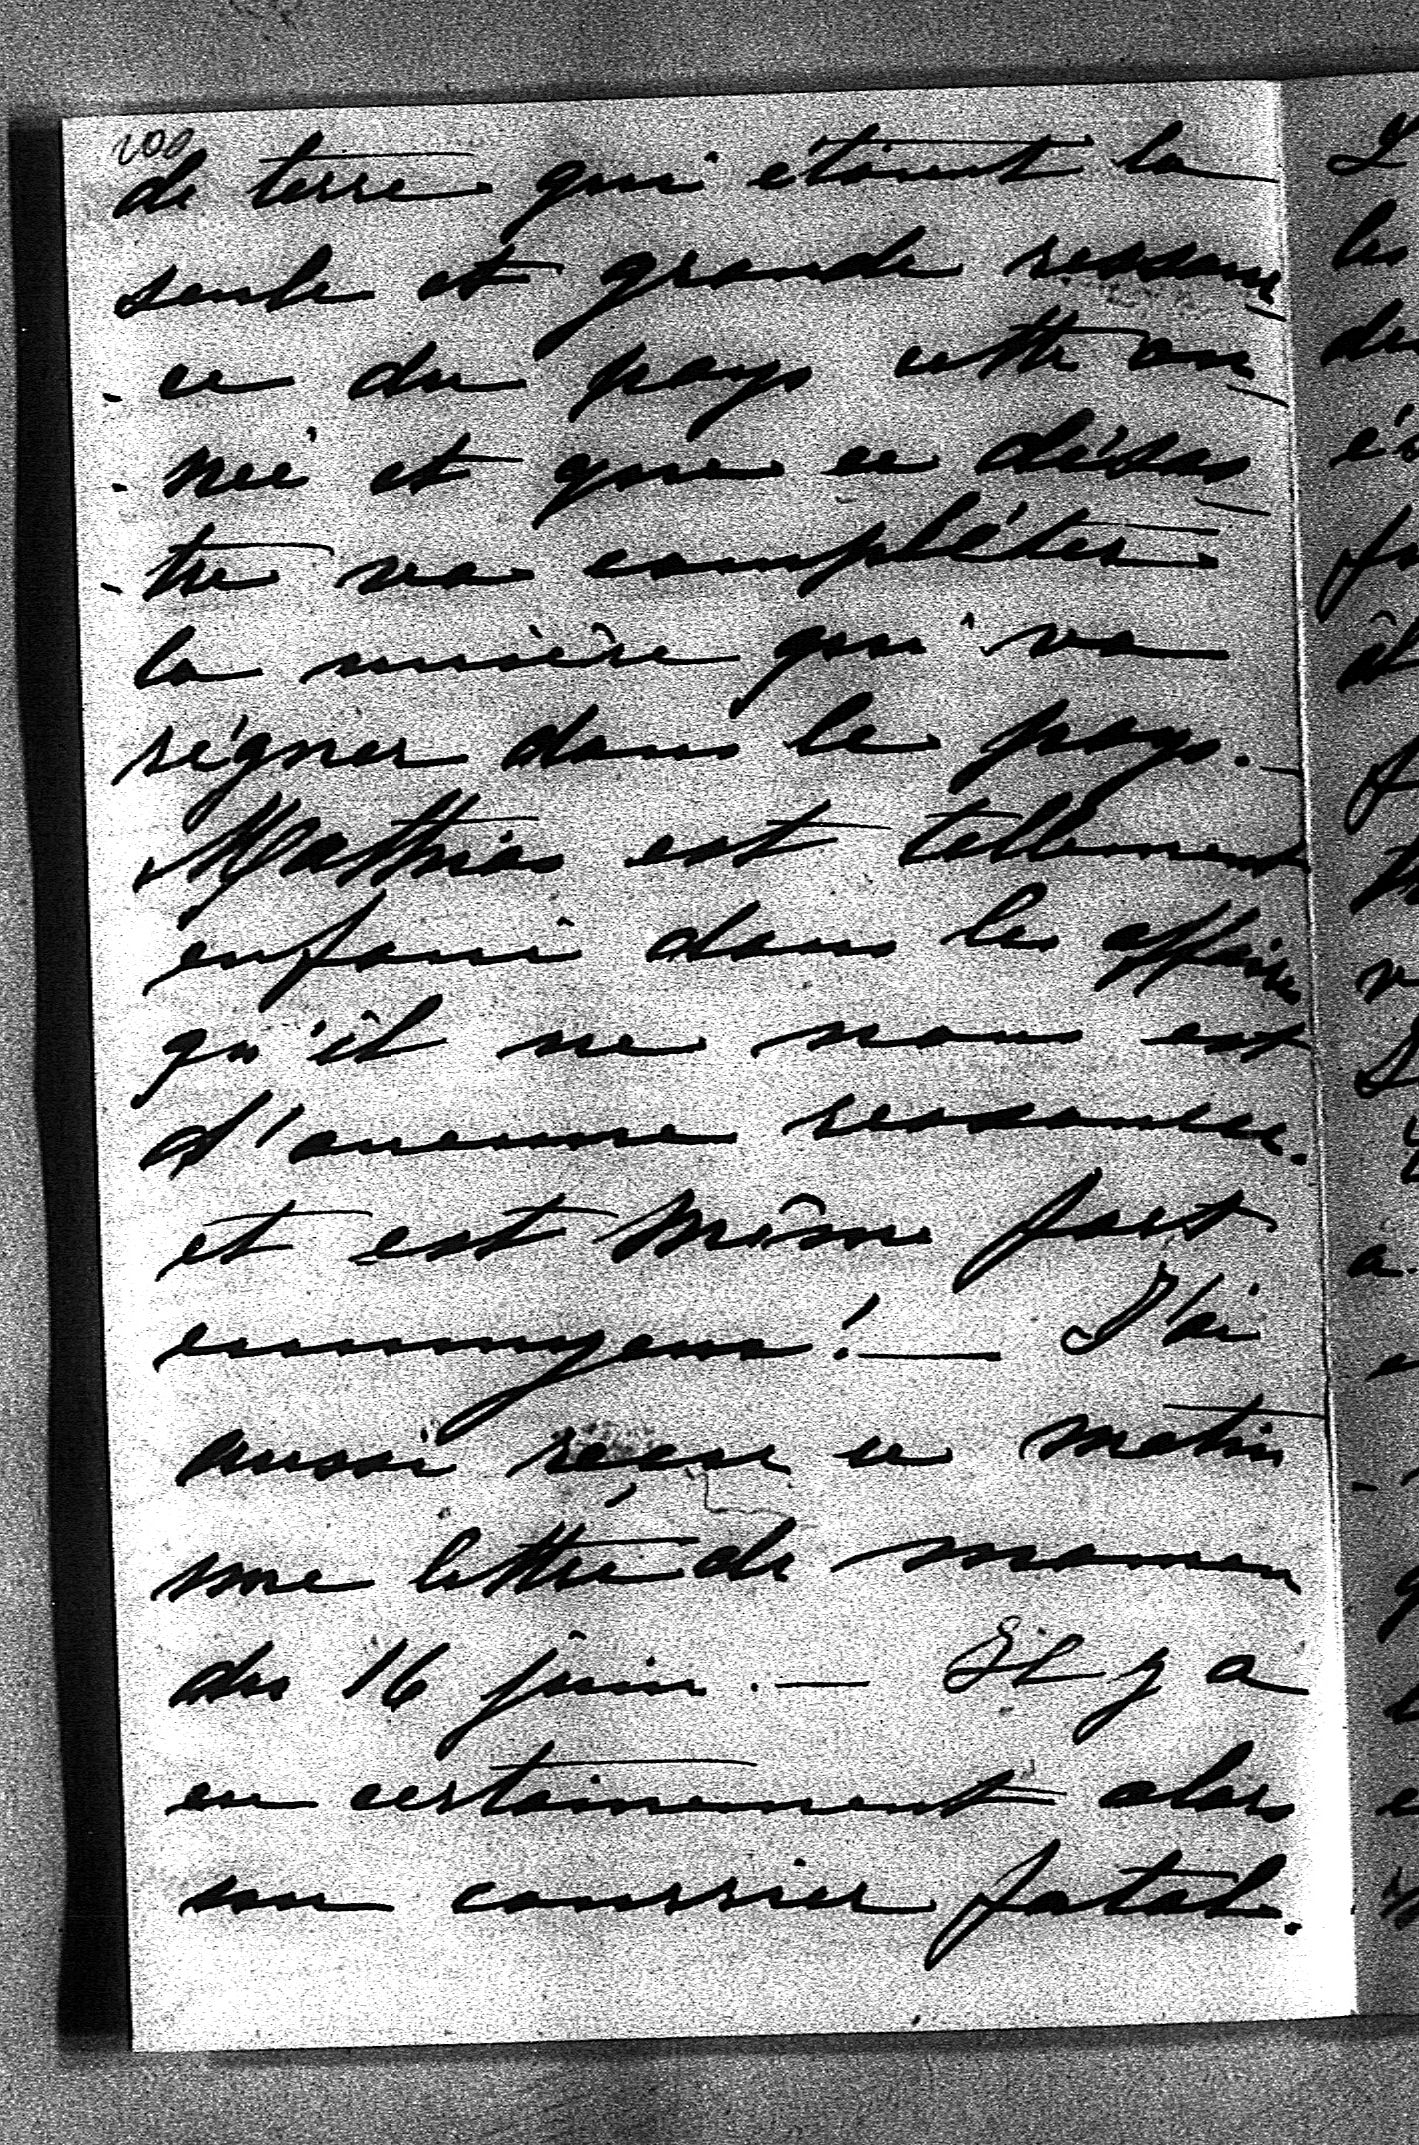 de terre qui étaient la
seule et grande ressour
- ce du pays cette an
- née et que ce désas
- tre va compléter
la misère qui va
régner dans le pays. -
Mathias est tellement
enfoui dans les affaires
qu'il ne nous est
d'aucune ressource.
et est même fort
ennuyeux ! — J'ai
aussi reçu ce matin
une lettre de maman
du 16 juin. — Il y a
eu certainement alors
un courrier fatal.